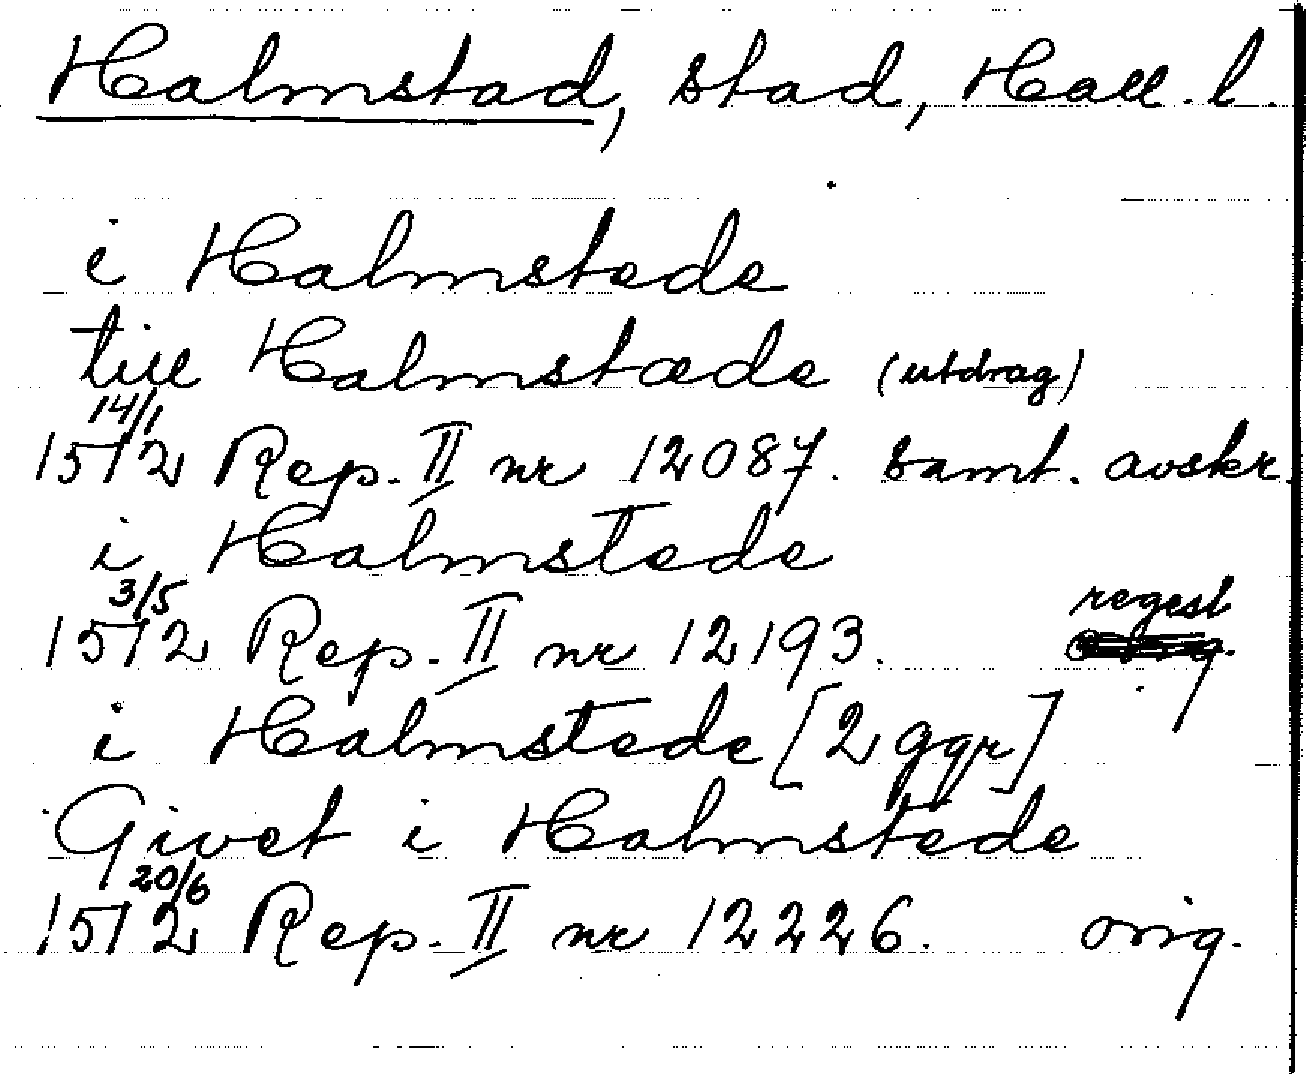 Halmstad, stad, Hall. l.
i Halmstede
till Halmstæde (utdrag)
14/1
1512 Rep. II nr 12087. samt. avskr.
i Halmstede
3/5
1512 Rep. II nr 12193. regest
i Halmstede [2 ggr]
Givet i Halmstede
20/6
1512 Rep. II nr 12226. orig.